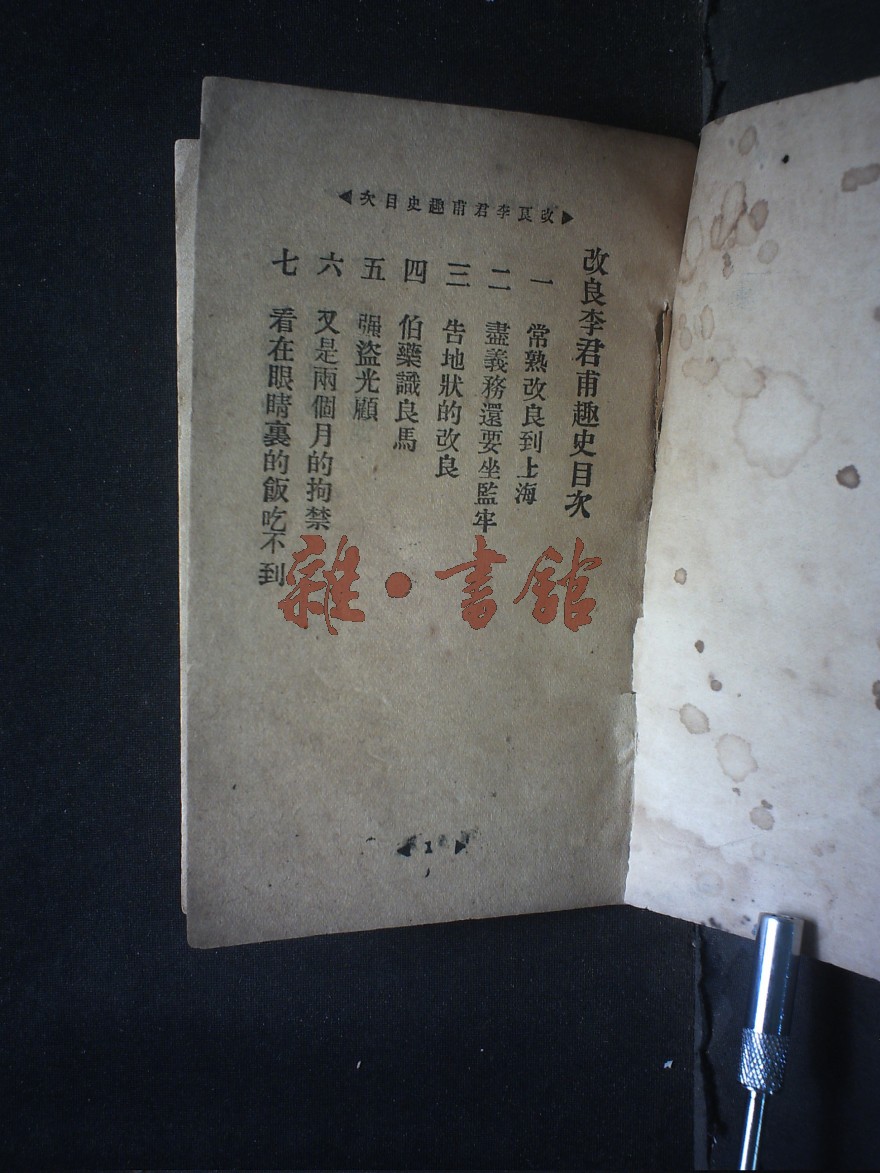 改良李君甫趣史目次
改良李君甫趣史目次
一 常熟改良到上海
二 盡義務還要坐監牢
三 告地狀的改良
四 伯藥識良馬
五 强盜光顧
六 又是兩個月的拘禁
七 看在眼睛裏的飯吃不到
1
雜·書館